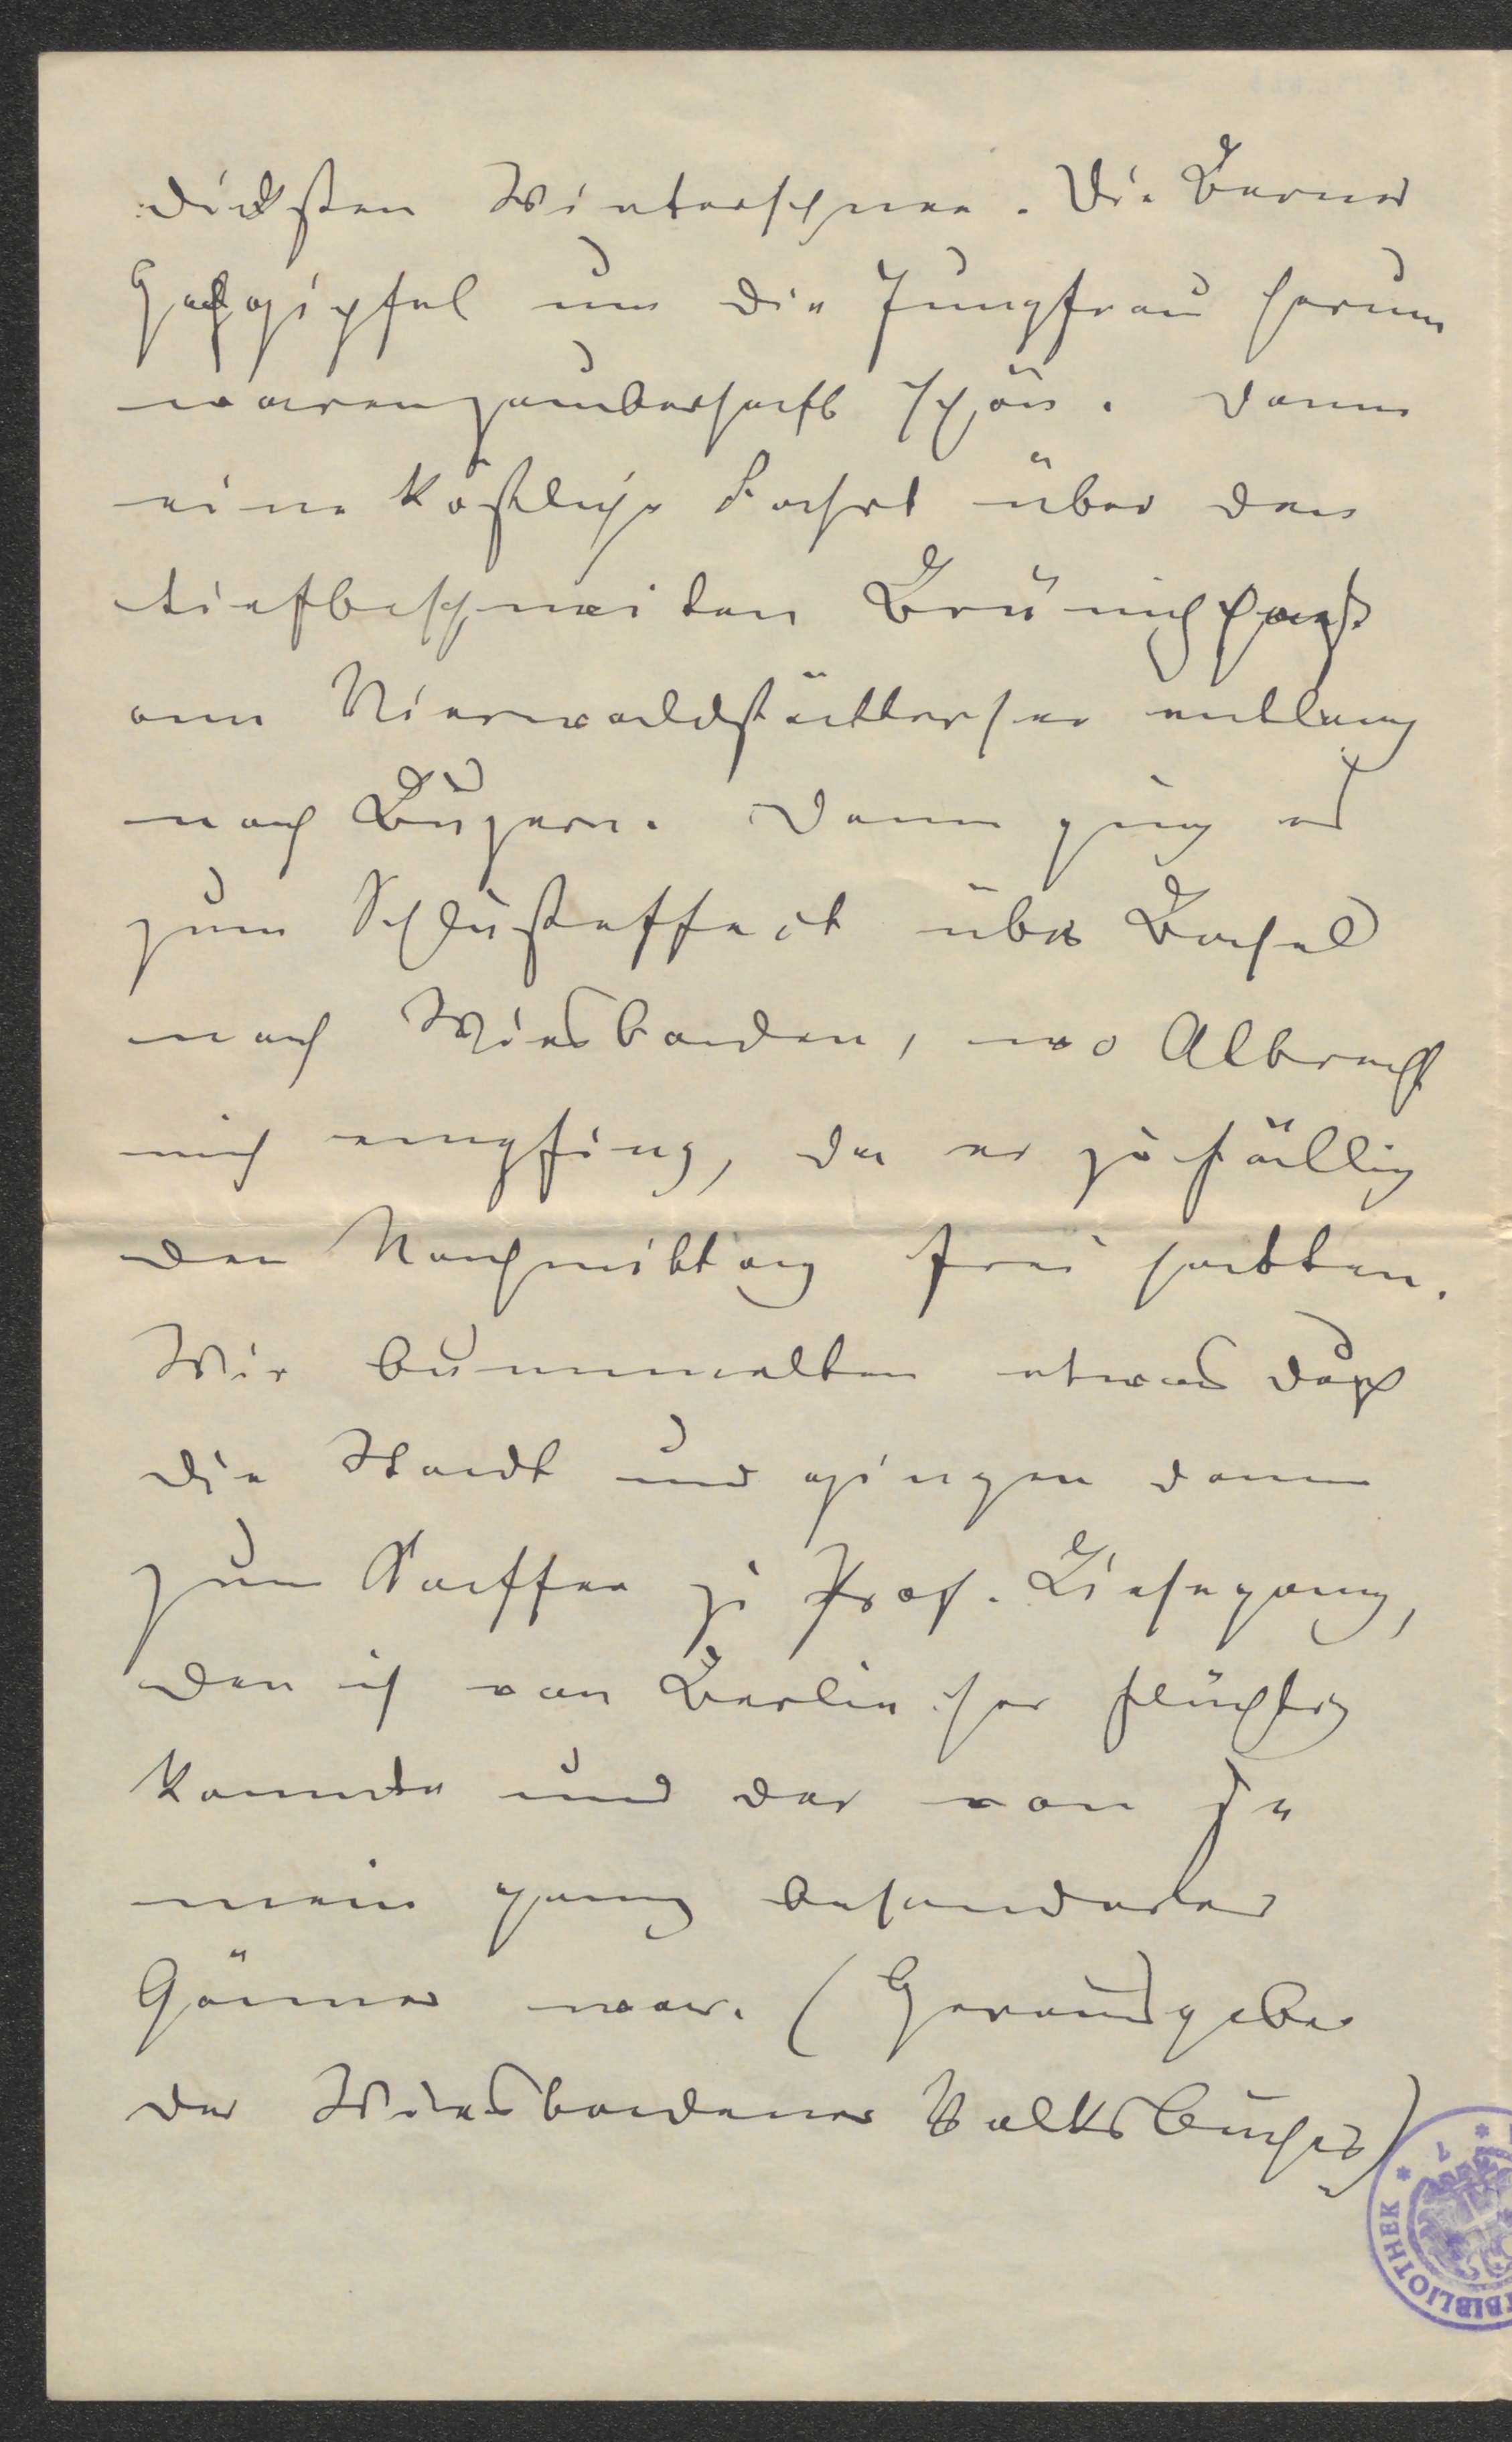 dicksten Winterschnee. Die Berner
Hochgipfel um die Jungfrau herum
waren zauberhaft schön. Dann
eine köstliche Fahrt über den
tiefbeschneiten Brünigpaß
am Vierwaldstättersee entlang
nach Luzern. Dann ging es
zum Schlußeffect über Basel
nach Wiesbaden, wo Albrecht
mich empfing, da er zufällig
den Nachmittag frei hatten.
Wir bummelten etwas durch
die Stadt und gingen dann
zum Kaffee zu Prof. Liesegang,
den ich von Berlin her flüchtig
kannte und der von je
mein ganz besonderer
Gönner war. (Herausgeber
der Wiesbadener Volksbücher)
BIBLIOTHEK